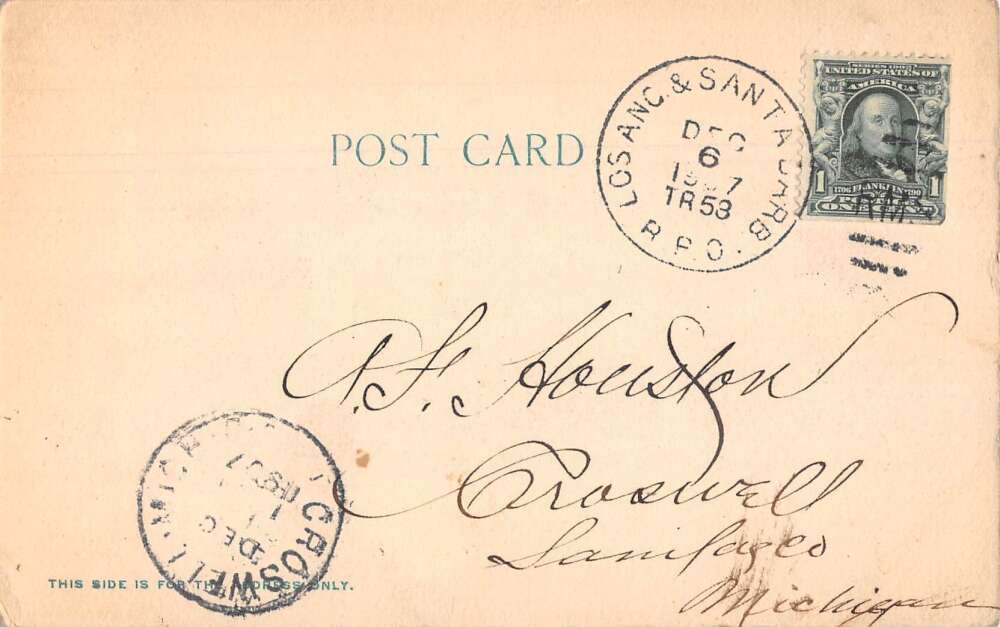 POST CARD
LOS ANG. & SANTA BARB
DEC
6
1907
TR 53
R.P.O.
SERIES 1902
UNITED STATES OF
AMERICA
1706 FRANKLIN 1790
1 POSTAGE 1
ONE CENT
R.M.S
Houston
Croswell
Sanilac Co
Michigan
CROSWELL MICH.
DEC
11
1907
THIS SIDE IS FOR THE ADDRESS ONLY.